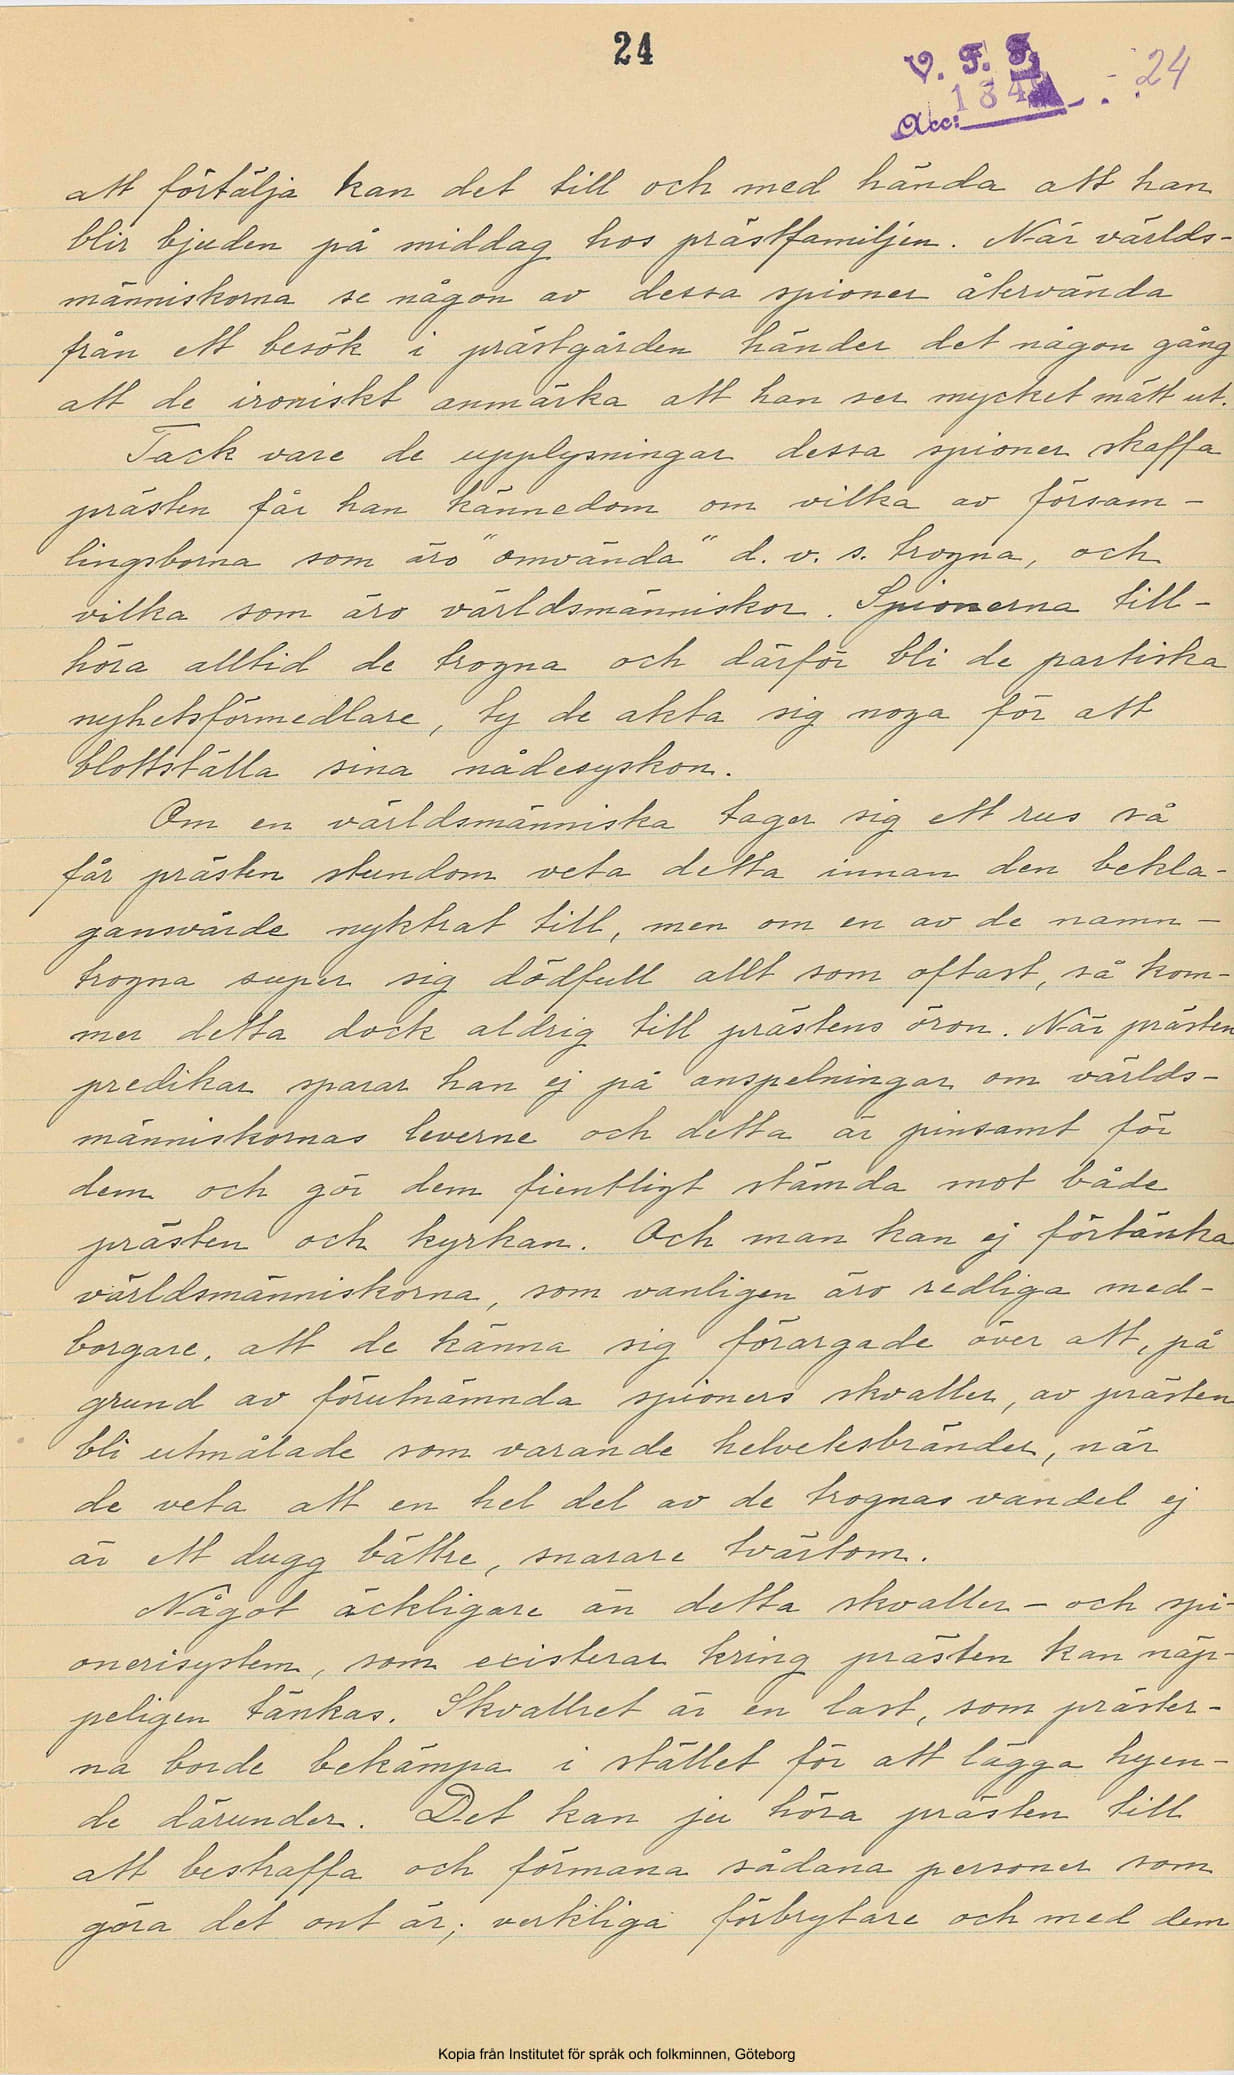 24
V. F. F.
Acc: 184 - : 24
att förtälja kan det till och med hända att han
blir bjuden på middag hos prästfamiljen. När världs-
människorna se någon av dessa spioner återvända
från ett besök i prästgården händer det någon gång
att de ironiskt anmärka att han ser mycket mätt ut.
Tack vare de upplysningar dessa spioner skaffa
prästen får han kännedom om vilka av försam-
lingsborna som äro "omvända" d. v. s. trogna, och
vilka som äro världsmänniskor. Spionerna till-
höra alltid de trogna och därför bli de partiska
nyhetsförmedlare, ty de akta sig noga för att
blottställa sina nådesyskon.
Om en världsmänniska tager sig ett rus så
får prästen stundom veta detta innan den bekla-
gansvärde nyktrat till, men om en av de namn-
trogna super sig dödfull allt som oftast, så kom-
mer detta dock aldrig till prästens öron. När prästen
predikar sparar han ej på anspelningar om världs-
människornas leverne och detta är pinsamt för
dem och gör dem fientligt stämda mot både
prästen och kyrkan. Och man kan ej förtänka
världsmänniskorna, som vanligen äro redliga med-
borgare, att de känna sig förargade över att, på
grund av förutnämnda spioners skvaller, av prästen
bli utmålade som varande helvetesbränder, när
de veta att en hel del av de trognas vandel ej
är ett dugg bättre, snarare tvärtom.
Något äckligare än detta skvaller- och spi-
onerisystem, som existerar kring prästen kan näp-
peligen tänkas. Skvallret är en last, som präster-
na borde bekämpa i stället för att lägga hyen-
de därunder. Det kan ju höra prästen till
att bestraffa och förmana sådana personer som
göra det ont är; verkliga förbrytare och med dem
Kopia från Institutet för språk och folkminnen, Göteborg